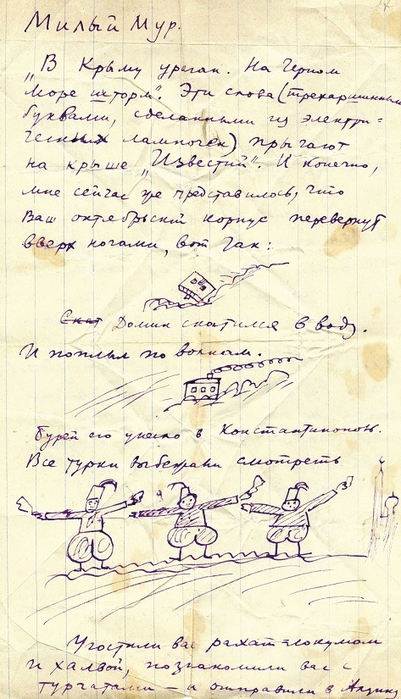 Милый Мур.
„В Крыму ураган. На Черном
море шторм". Эти слова (трехаршинными
буквами, сделанными из электри=
ческих лампочек) прыгают
на крыше „Известий". И конечно,
мне сейчас же представилось, что
Ваш октябрьский корпус перевернут
вверх ногами, вот так:
Домик скатился в воду.
И поплыл по волнам.
Бурей его унесло в Константинополь.
Все турки выбежали смотреть
Угостили вас рахат-локумом
и халвой, познакомили вас с
турчатами — а отправили в